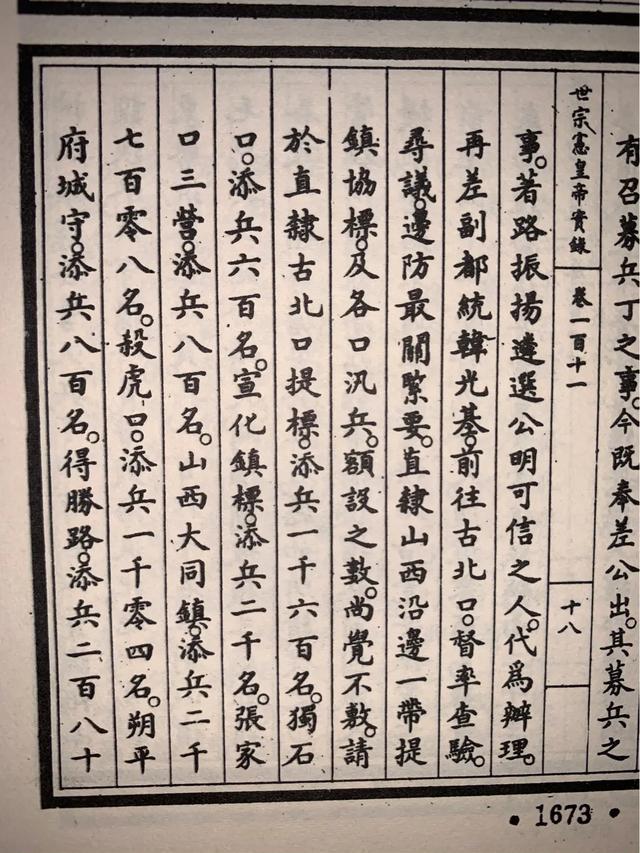 有召募兵丁之事。今既奉差公出。其募兵之
世宗憲皇帝實錄　卷一百十一　十八
事。著路振揚遴選公明可信之人。代爲辦理。
再差副都統韓光基。前往古北口。督率查驗。
尋議。邊防最關緊要。直隸山西沿邊一帶提
鎮協標。及各口汛兵。額設之數。尚覺不敷。請
於直隸古北口提標。添兵一千六百名。獨石
口。添兵六百名。宣化鎮標。添兵二千名。張家
口三營。添兵八百名。山西大同鎮。添兵二千
七百零八名。殺虎口。添兵一千零四名。朔平
府城守。添兵八百名。得勝路。添兵二百八十
• 1673 •